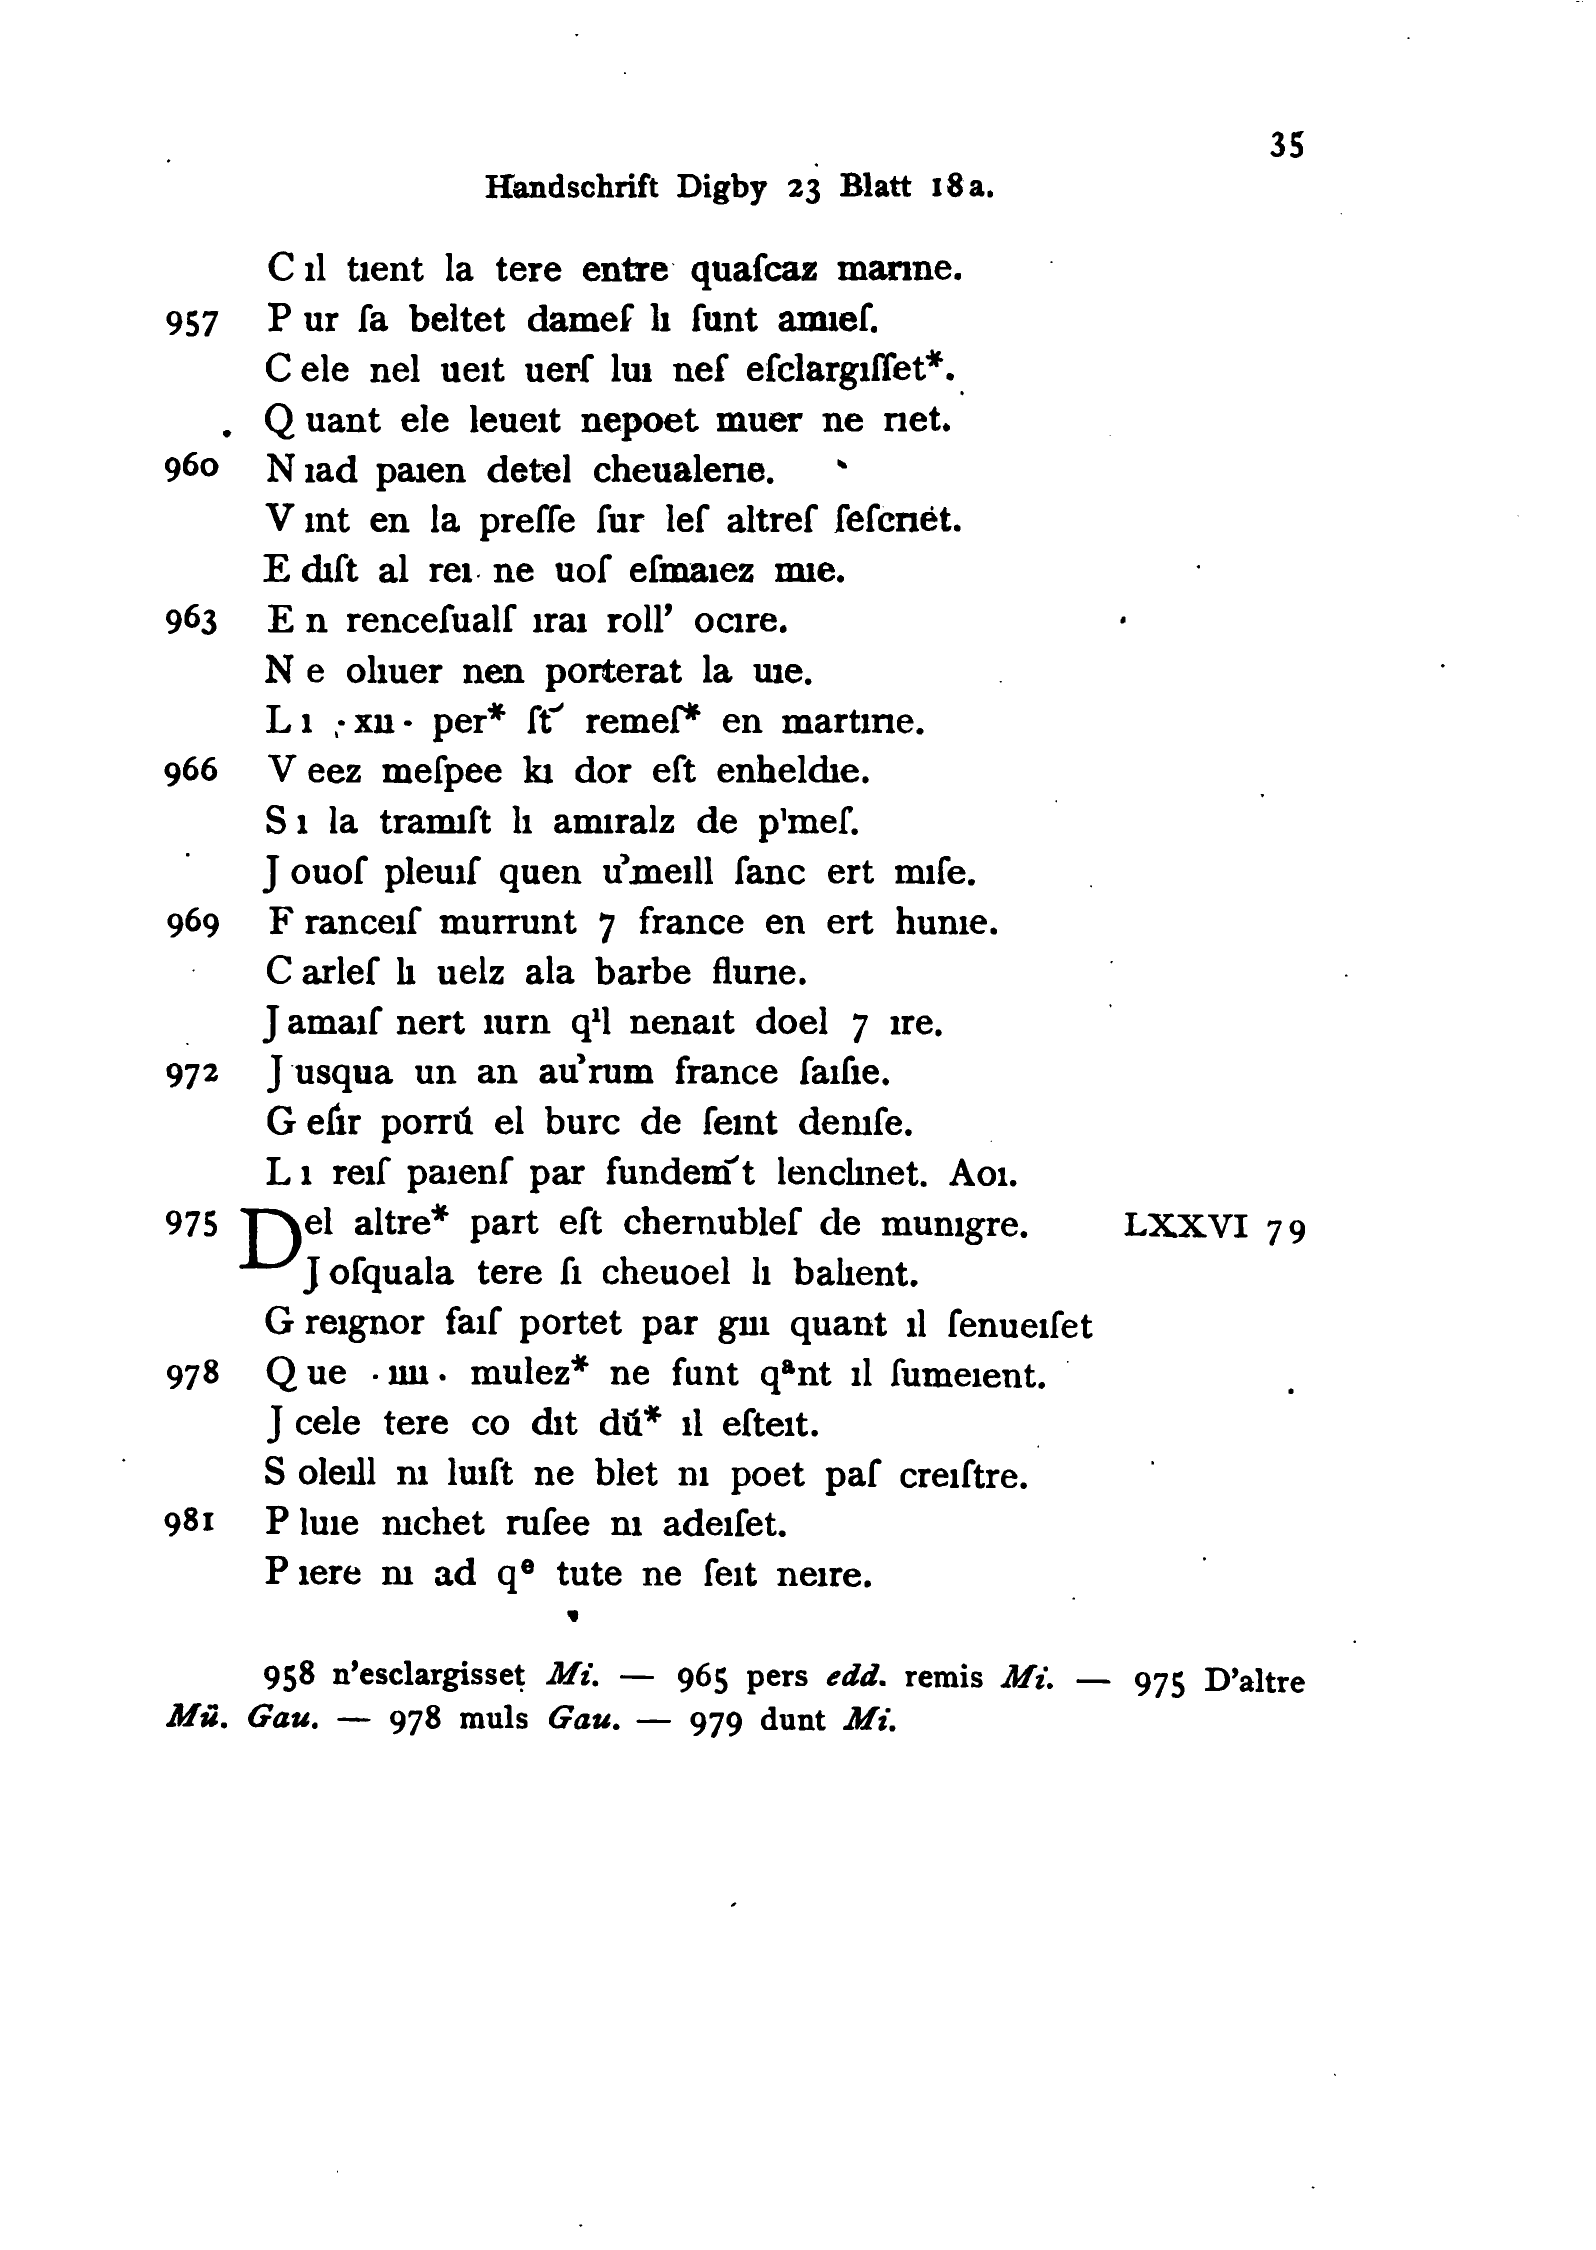 35
Handschrift Digby 23 Blatt 18a.
C ıl tıent la tere entre quaſcaz marıne.
957 P ur ſa beltet dameſ lı ſunt amıeſ.
C ele nel ueıt uerſ luı neſ eſclargıſſet*.
Q uant ele leueıt nepoet muer ne rıet.
960 N ıad paıen detel cheualerıe.
V ınt en la preſſe ſur leſ altreſ ſeſcrıét.
E dıſt al reı ne uoſ eſmaıez mıe.
963 E n renceſualſ ıraı roll’ ocıre.
N e olıuer nen porterat la uıe.
L ı · xıı · per* ſt᷃ remeſ* en martırıe.
966 V eez meſpee kı dor eſt enheldıe.
S ı la tramıſt lı amıralz de pᶦmeſ.
J ouoſ pleuıſ quen u’meıll ſanc ert mıſe.
969 F ranceıſ murrunt 7 france en ert hunıe.
C arleſ lı uelz ala barbe flurıe.
J amaıſ nert ıurn qᶦl nenaıt doel 7 ıre.
972 J usqua un an au’rum france ſaıſıe.
G eſır porrú el burc de ſeınt denıſe.
L ı reıſ paıenſ par fundem̄t lenclınet. Aoı.
975 Del altre* part eſt chernubleſ de munıgre. LXXVI 79
J oſquala tere ſı cheuoel lı balıent.
G reıgnor faıſ portet par gıuı quant ıl ſenueıſet
978 Q ue · ıııı · mulez* ne funt qᵃnt ıl ſumeıent.
J cele tere co dıt dú* ıl eſteıt.
S oleıll nı luıſt ne blet nı poet paſ creıſtre.
981 P luıe nıchet ruſee nı adeıſet.
P ıere nı ad qᵉ tute ne ſeıt neıre.
958 n’esclargisseṭ Mi. — 965 pers edd. remis Mi. — 975 D’altre
Mü. Gau. — 978 muls Gau. — 979 dunt Mi.